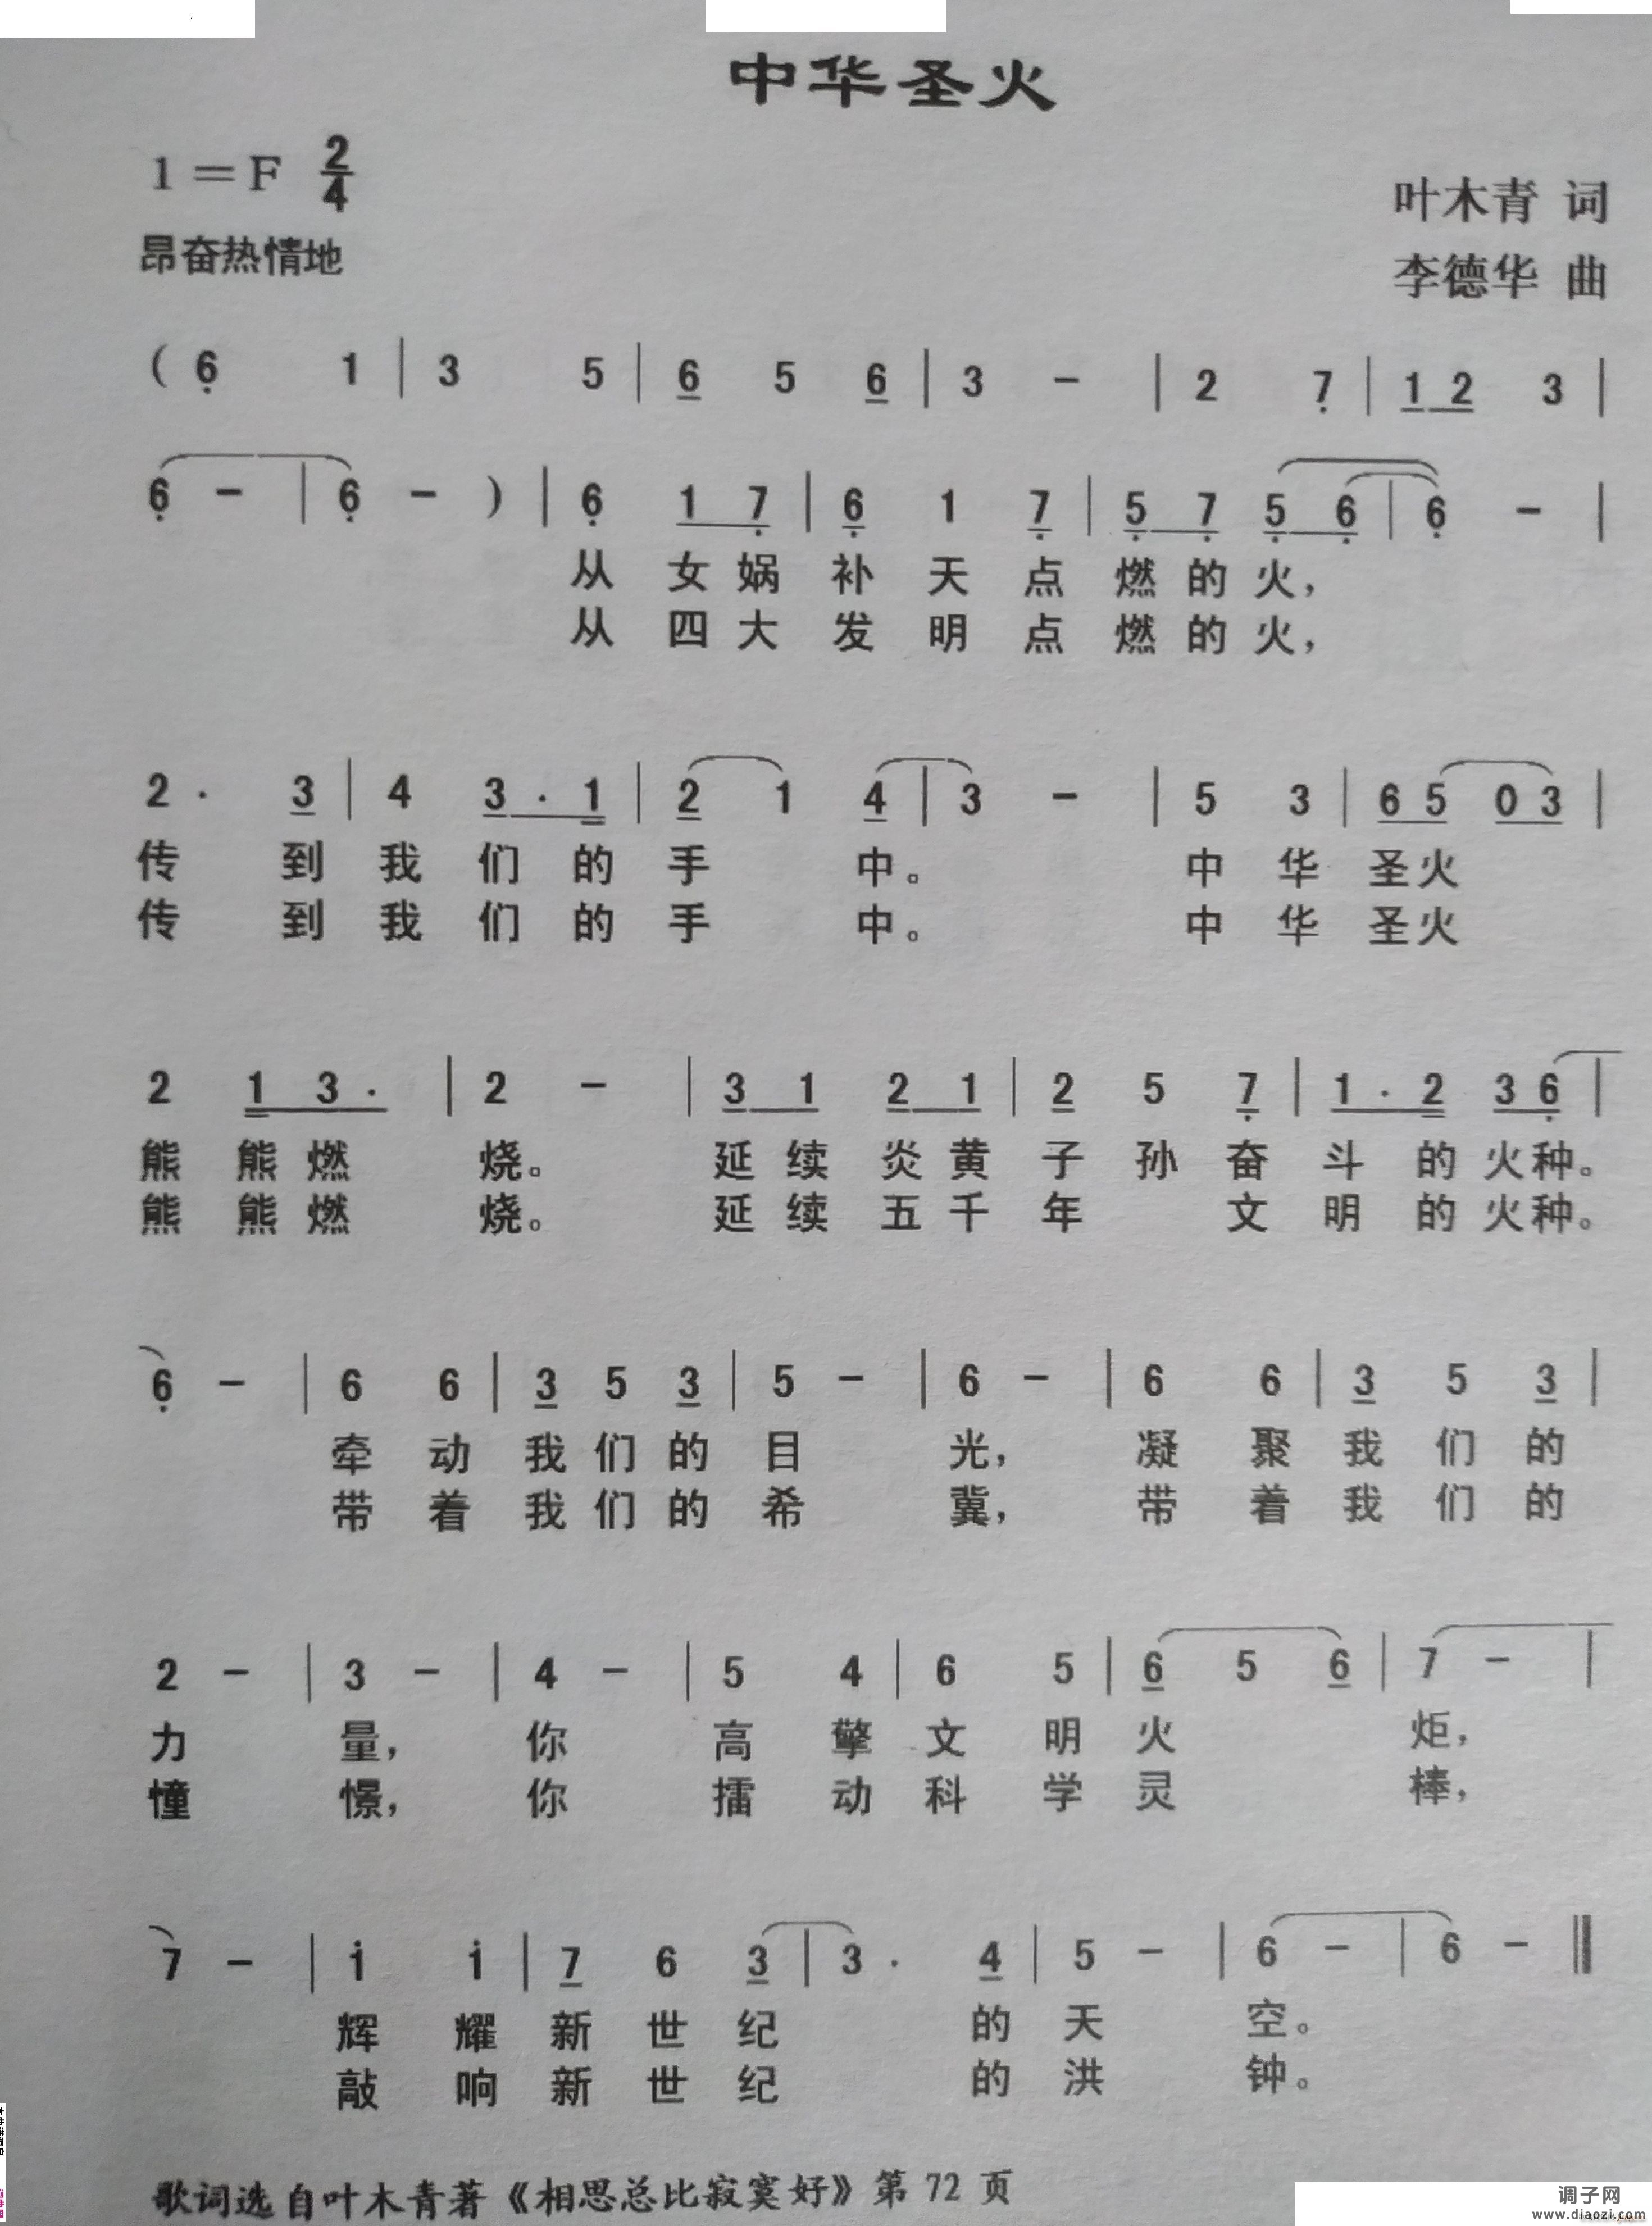 中华圣火
1=F 2/4
叶木青 词
昂奋热情地
李德华 曲
( 6 1 | 3 5 | 6 5 6 | 3 - | 2 7 | 1 2 3 |
6 - | 6 - ) | 6 1 7 | 6 1 7 | 5 7 5 6 | 6 - |
从 女 娲 补 天 点 燃 的 火，
从 四 大 发 明 点 燃 的 火，
2 · 3 | 4 3 · 1 | 2 1 4 | 3 - | 5 3 | 6 5 0 3 |
传 到 我 们 的 手 中。 中 华 圣 火
传 到 我 们 的 手 中。 中 华 圣 火
2 1 3 · | 2 - | 3 1 2 1 | 2 5 7 | 1 · 2 3 6 |
熊 熊 燃 烧。 延 续 炎 黄 子 孙 奋 斗 的 火 种。
熊 熊 燃 烧。 延 续 五 千 年 文 明 的 火 种。
6 - | 6 6 | 3 5 3 | 5 - | 6 - | 6 6 | 3 5 3 |
牵 动 我 们 的 目 光， 凝 聚 我 们 的
带 着 我 们 的 希 冀， 带 着 我 们 的
2 - | 3 - | 4 - | 5 4 | 6 5 | 6 5 6 | 7 - |
力 量， 你 高 擎 文 明 火 炬，
憧 憬， 你 擂 动 科 学 灵 棒，
7 - | i i | 7 6 3 | 3 · 4 | 5 - | 6 - | 6 - ‖
辉 耀 新 世 纪 的 天 空。
敲 响 新 世 纪 的 洪 钟。
歌词选自叶木青著《相思总比寂寞好》第 72 页
调子网
www.diaozi.com